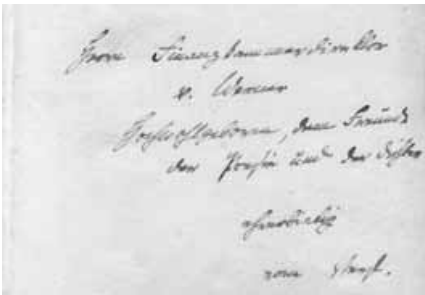 Herrn Finanzkammerdirektor
v. Werner
Hochwohlgeboren, dem Freunde
der Poesie und der Dichter
ehrerbietig
vom